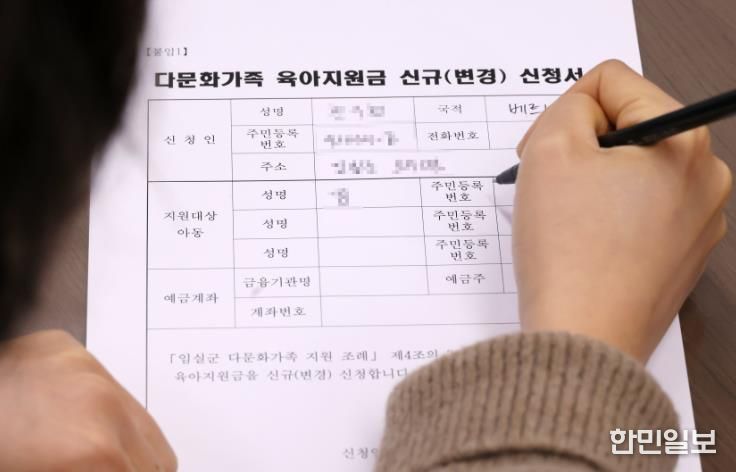 [붙임1]
다문화가족 육아지원금 신규(변경) 신청서
신청인 성명 국적
주민등록번호 전화번호
주소
지원대상 아동 성명 주민등록번호
성명 주민등록번호
성명 주민등록번호
예금계좌 금융기관명 예금주
계좌번호
「임실군 다문화가족 지원 조례」 제4조의
육아지원금을 신규(변경) 신청합니다
한민일보